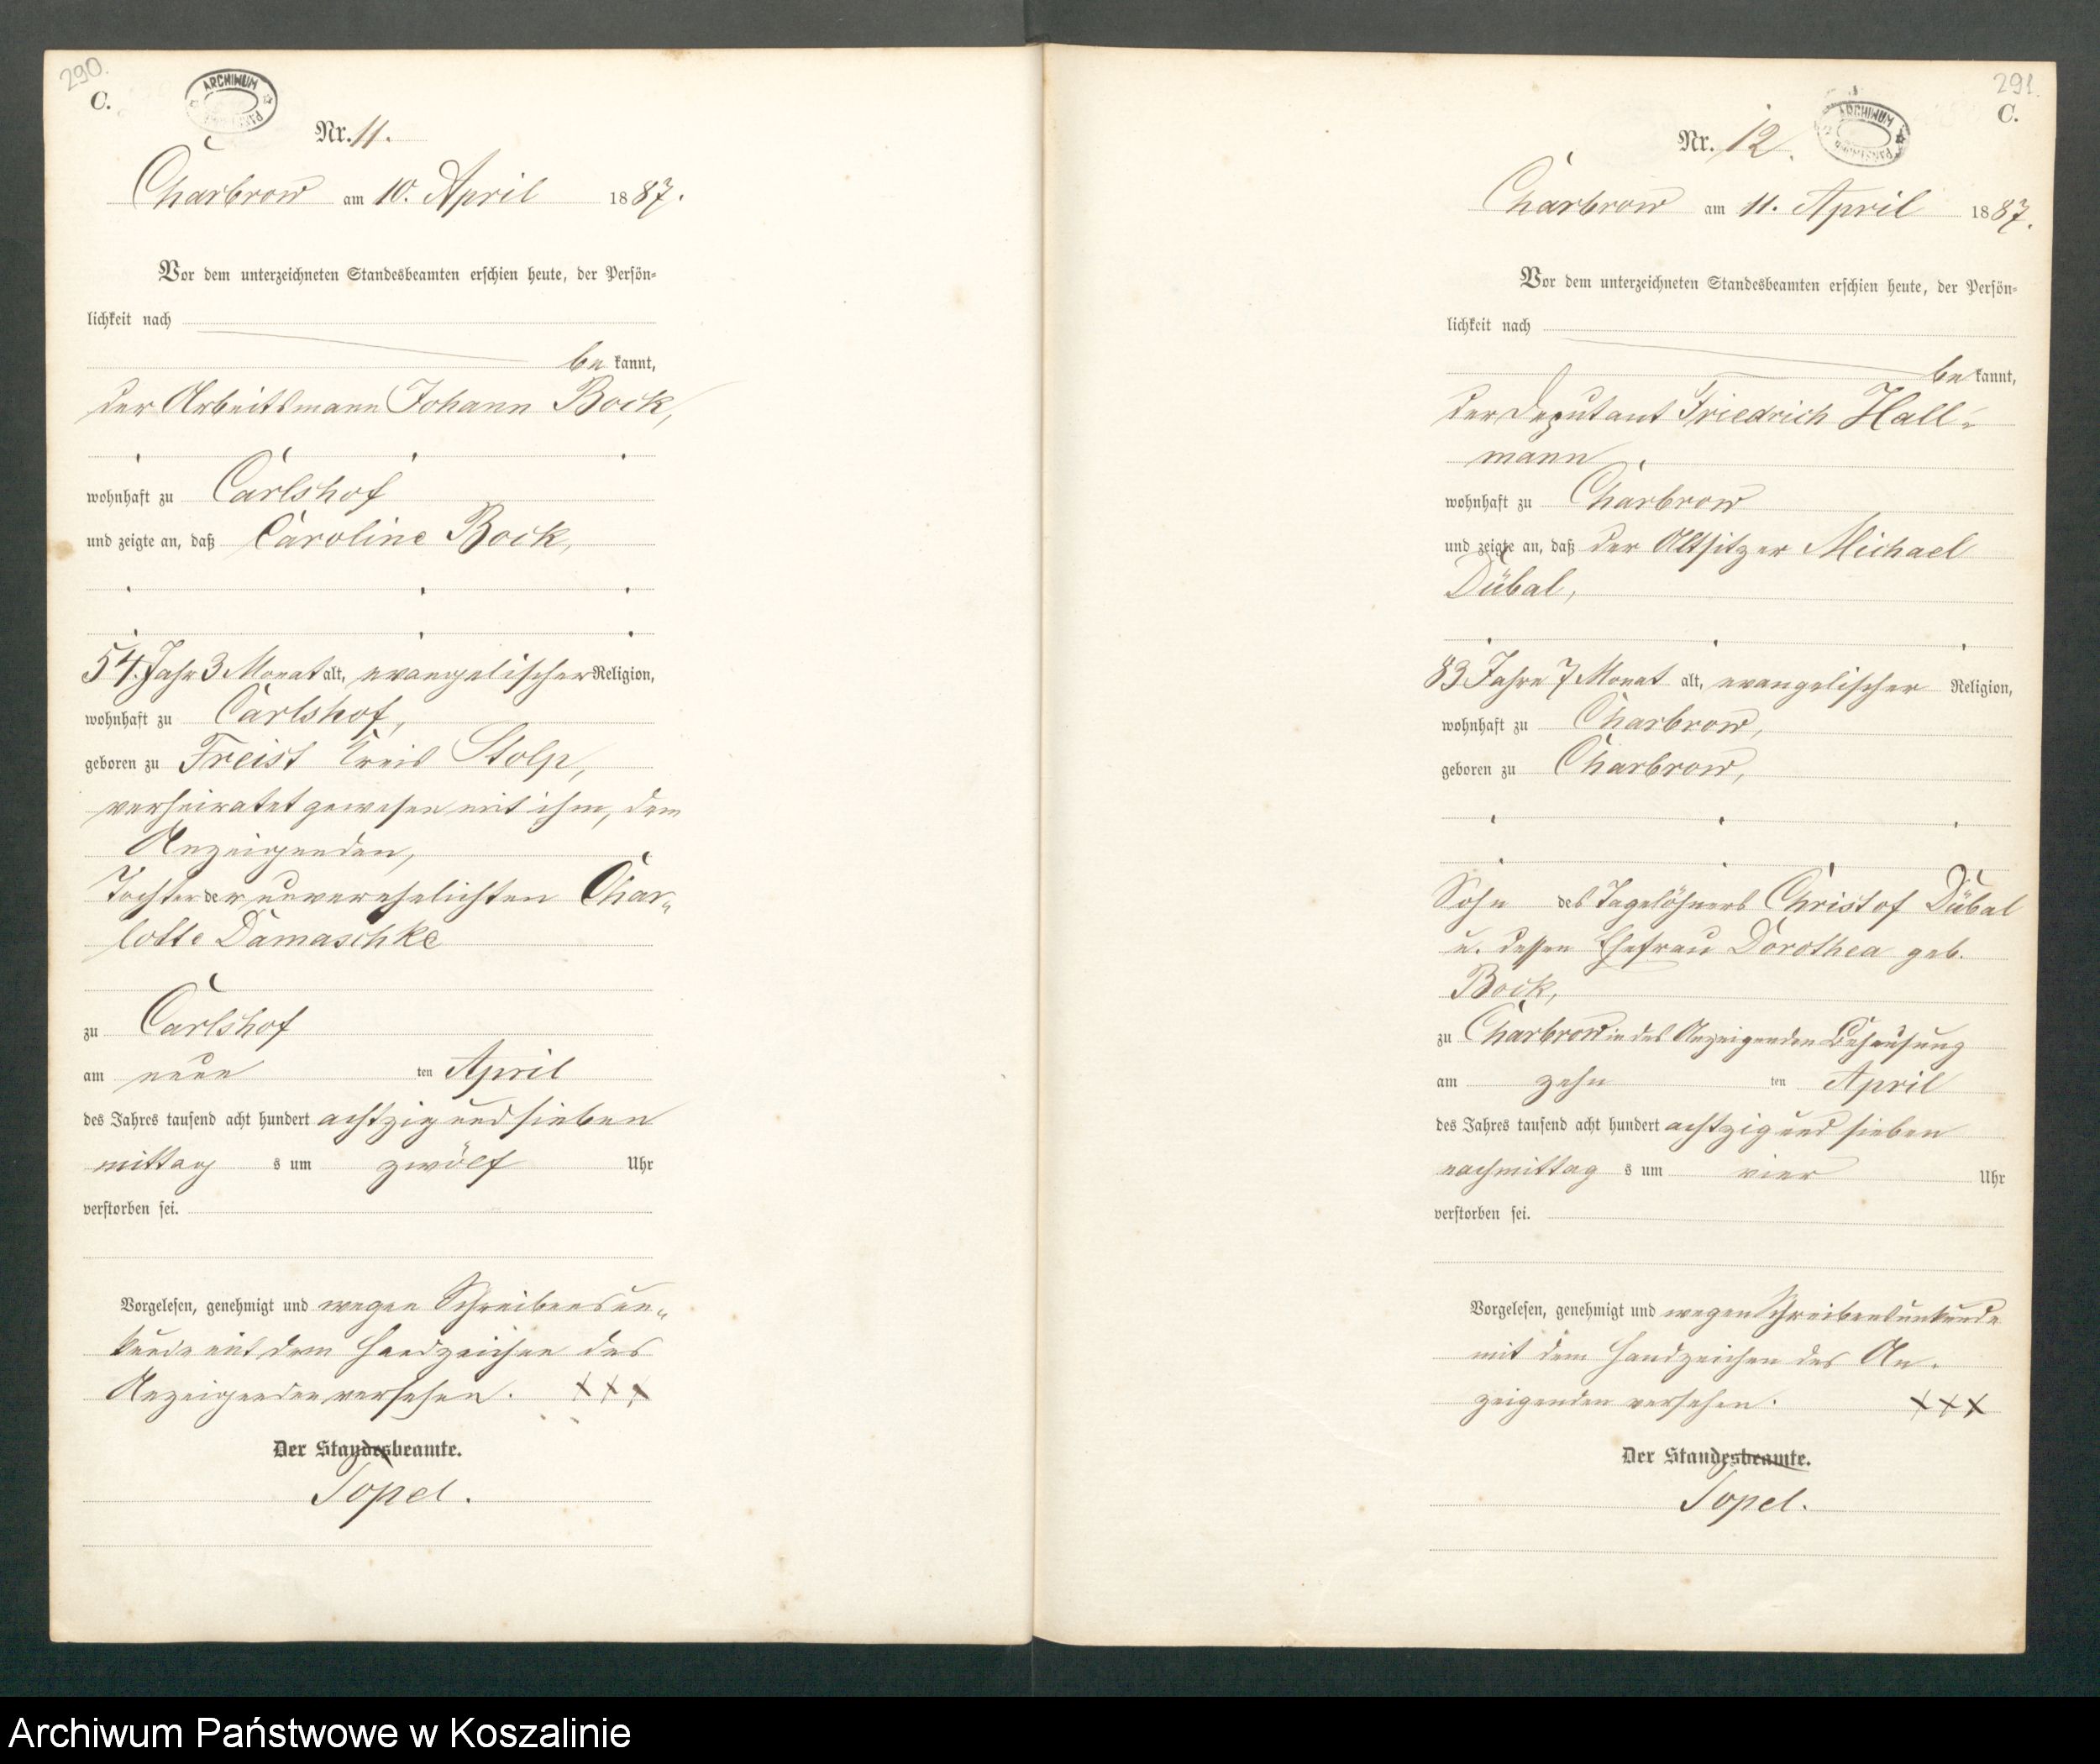 290.
C.
ARCHIWUM
Nr. 11.
Charbrow am 10. April 1887.
Vor dem unterzeichneten Standesbeamten erschien heute, der Persön-
lichkeit nach
be kannt,
der Arbeitsmann Johann Bock,
wohnhaft zu Carlshof
und zeigte an, daß Caroline Bock,
54 Jahr 3 Monat alt, evangelischer Religion,
wohnhaft zu Carlshof,
geboren zu Freist Kreis Stolp,
verheiratet gewesen mit ihm, dem
Anzeigenden,
Tochter der unverehelichten Char-
lotte Damaschke
zu Carlshof
am neun ten April
des Jahres tausend acht hundert achtzig und sieben
mittag s um zwölf Uhr
verstorben sei.
Vorgelesen, genehmigt und wegen Schreibensun-
kunde mit dem Handzeichen des
Anzeigenden versehen. XXX
Der Standesbeamte.
Topel.
291.
C.
ARCHIWUM
Nr. 12.
Charbrow am 11. April 1887.
Vor dem unterzeichneten Standesbeamten erschien heute, der Persön-
lichkeit nach
be kannt,
der Deputant Friedrich Hall-
mann
wohnhaft zu Charbrow
und zeigte an, daß der Altsitzer Michael
Dübal,
83 Jahre 7 Monat alt, evangelischer Religion,
wohnhaft zu Charbrow,
geboren zu Charbrow,
Sohn des Tagelöhners Christof Dübal
u. dessen Ehefrau Dorothea geb.
Bock,
zu Charbrow in des Anzeigenden Behausung
am zehn ten April
des Jahres tausend acht hundert achtzig und sieben
nachmittag s um vier Uhr
verstorben sei.
Vorgelesen, genehmigt und wegen Schreibensunkunde
mit dem Handzeichen des An-
zeigenden versehen. XXX
Der Standesbeamte.
Topel.
Archiwum Państwowe w Koszalinie